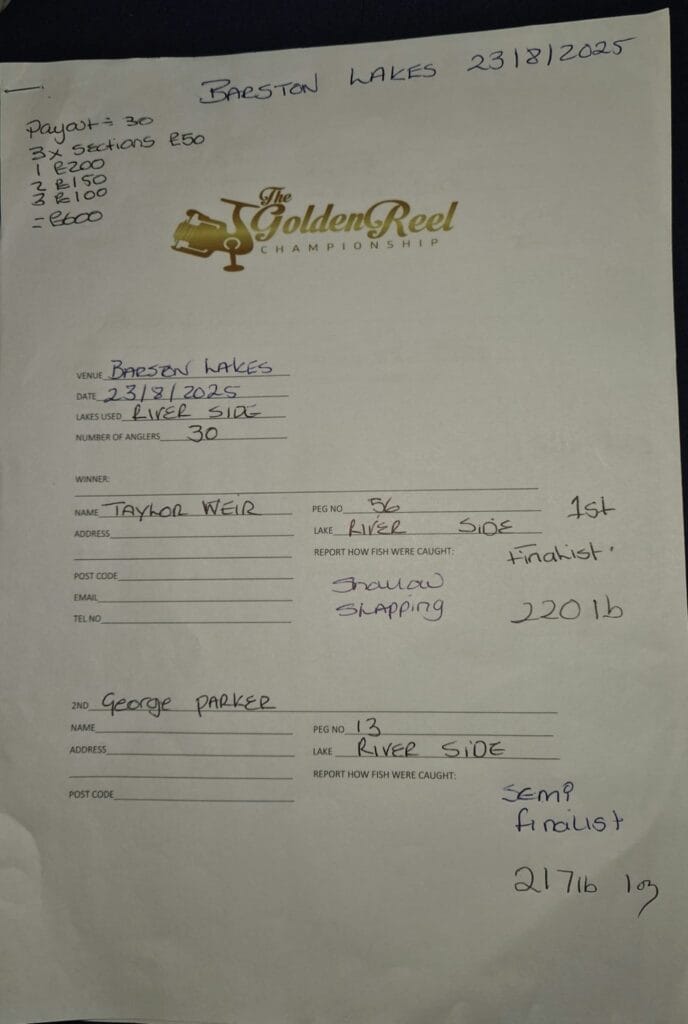 BARSTON LAKES 23/8/2025
Payout = 30
3x sections £50
1 £200
2 £150
3 £100
= £600
The
GoldenReel
CHAMPIONSHIP
VENUE BARSTON LAKES
DATE 23/8/2025
LAKES USED RIVER SIDE
NUMBER OF ANGLERS 30
WINNER:
NAME TAYLOR WEIR PEG NO 56 1st
ADDRESS LAKE RIVER SIDE
REPORT HOW FISH WERE CAUGHT: Finalist.
POST CODE Shallow
EMAIL SLAPPING 220 lb
TEL NO
2ND George PARKER
NAME PEG NO 13
ADDRESS LAKE RIVER SIDE
REPORT HOW FISH WERE CAUGHT:
POST CODE SEMI
finalist
217lb 1oz